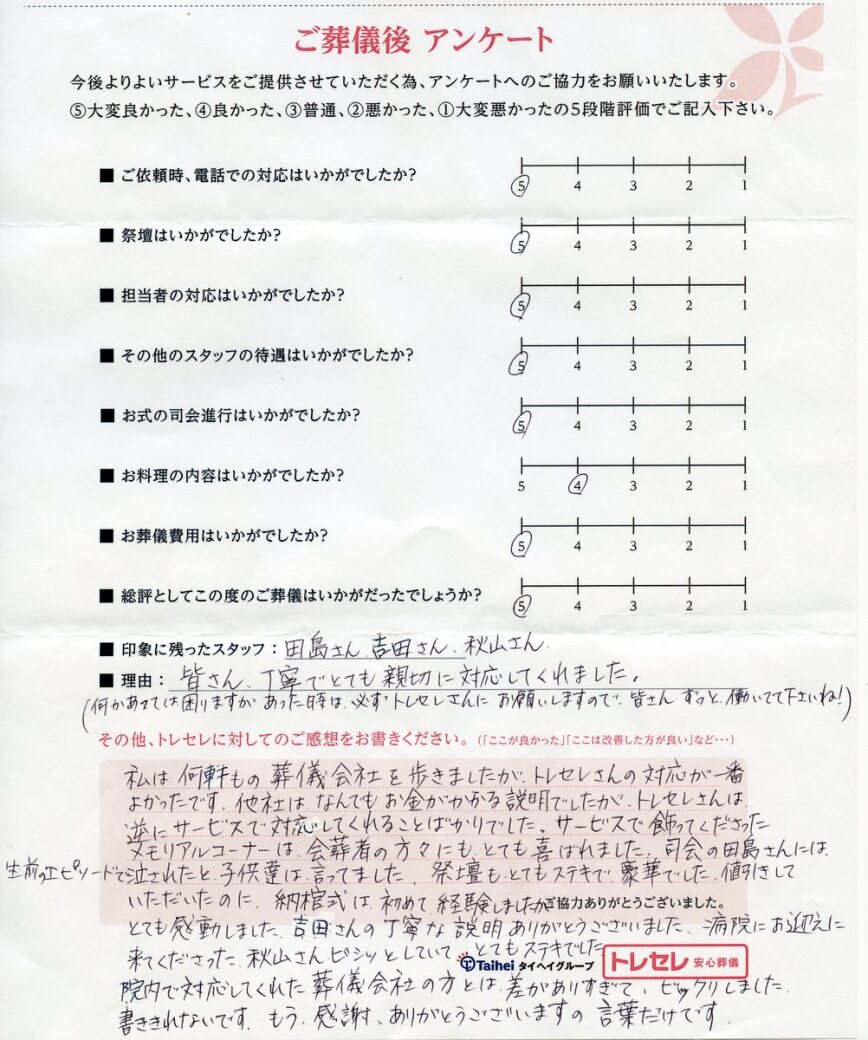 ご葬儀後 アンケート
今後よりよいサービスをご提供させていただく為、アンケートへのご協力をお願いいたします。
⑤大変良かった、④良かった、③普通、②悪かった、①大変悪かったの5段階評価でご記入下さい。
■ ご依頼時、電話での対応はいかがでしたか?
5 4 3 2 1
■ 祭壇はいかがでしたか?
5 4 3 2 1
■ 担当者の対応はいかがでしたか?
5 4 3 2 1
■ その他のスタッフの待遇はいかがでしたか?
5 4 3 2 1
■ お式の司会進行はいかがでしたか?
5 4 3 2 1
■ お料理の内容はいかがでしたか?
5 4 3 2 1
■ お葬儀費用はいかがでしたか?
5 4 3 2 1
■ 総評としてこの度のご葬儀はいかがだったでしょうか?
5 4 3 2 1
■ 印象に残ったスタッフ：田島さん、吉田さん、秋山さん
■ 理由：皆さん、丁寧でとても親切に対応してくれました。
(何かあっては困りますが、あった時は、必ずトレセレさんにお願いしますので、皆さんずっと、働いてて下さいね!)
その他、トレセレに対してのご感想をお書きください。(「ここが良かった」「ここは改善した方が良い」など…)
私は、何軒もの葬儀会社を歩きましたが、トレセレさんの対応が一番
よかったです。他社は、なんでもお金がかかる説明でしたが、トレセレさんは、
逆にサービスで対応してくれることばかりでした。サービスで飾ってくださった
メモリアルコーナーは、会葬者の方々にも、とても喜ばれました。司会の田島さんには、
生前のエピソードで泣されたと、子供達は言ってました。祭壇も、とてもステキで、豪華でした。値引きして
いただいたのに、納棺式は、初めて経験しましたが
ご協力ありがとうございました。
とても感動しました。吉田さんの丁寧な説明ありがとうございました。病院にお迎えに
来てくださった、秋山さんビシッとしていて、とてもステキでした
Taihei タイヘイグループ トレセレ 安心葬儀
院内で対応してくれた葬儀会社の方とは、差がありすぎて、ビックリしました。
書ききれないです。もう、感謝、ありがとうございますの言葉だけです。